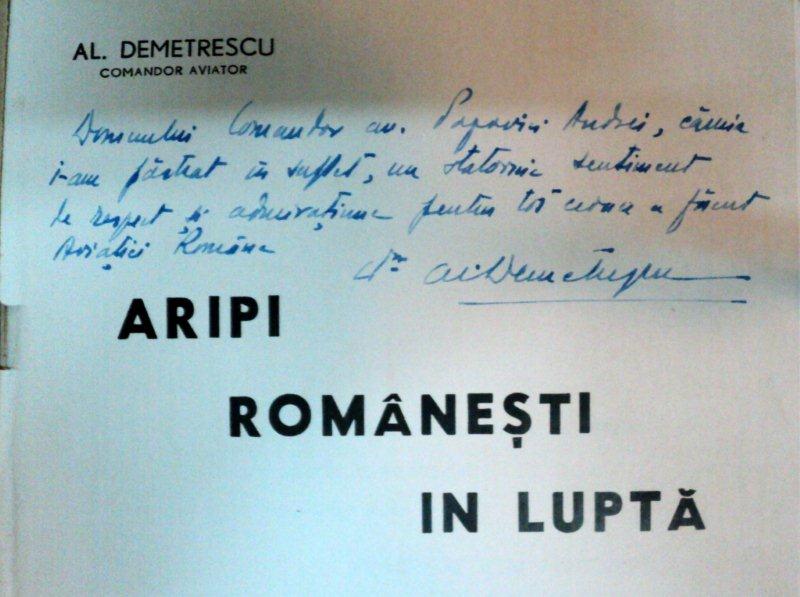 AL. DEMETRESCU
COMANDOR AVIATOR
Domnului Comandor av. Popovici Andrei, căruia
i-am păstrat în suflet, un statornic sentiment
de respect și admirațiune pentru tot ceea ce a făcut
Aviației Române
Al. Demetrescu
ARIPI
ROMÂNEȘTI
IN LUPTĂ